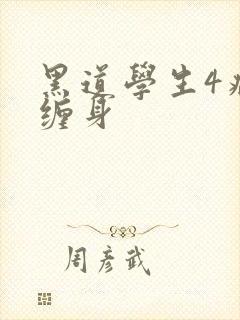 黑道學生4
缠身
周彦武